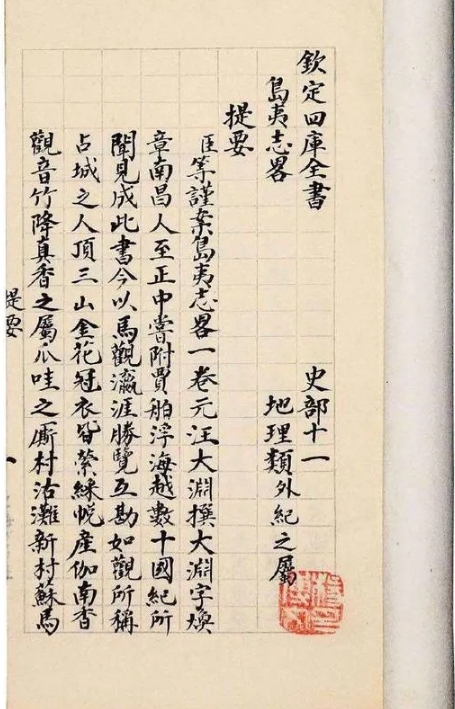 欽定四庫全書 史部十一
島夷志畧 地理類外紀之屬
提要
臣等謹案島夷志畧一卷元汪大淵撰大淵字煥
章南昌人至正中嘗附賈舶浮海越數十國紀所
聞見成此書今以馬觀瀛涯勝覽互勘如觀所稱
占城之人頂三山金花冠衣皆縈綵帨產伽南香
觀音竹降真香之屬爪哇之厮村沽灘新村蘇馬
提要
一